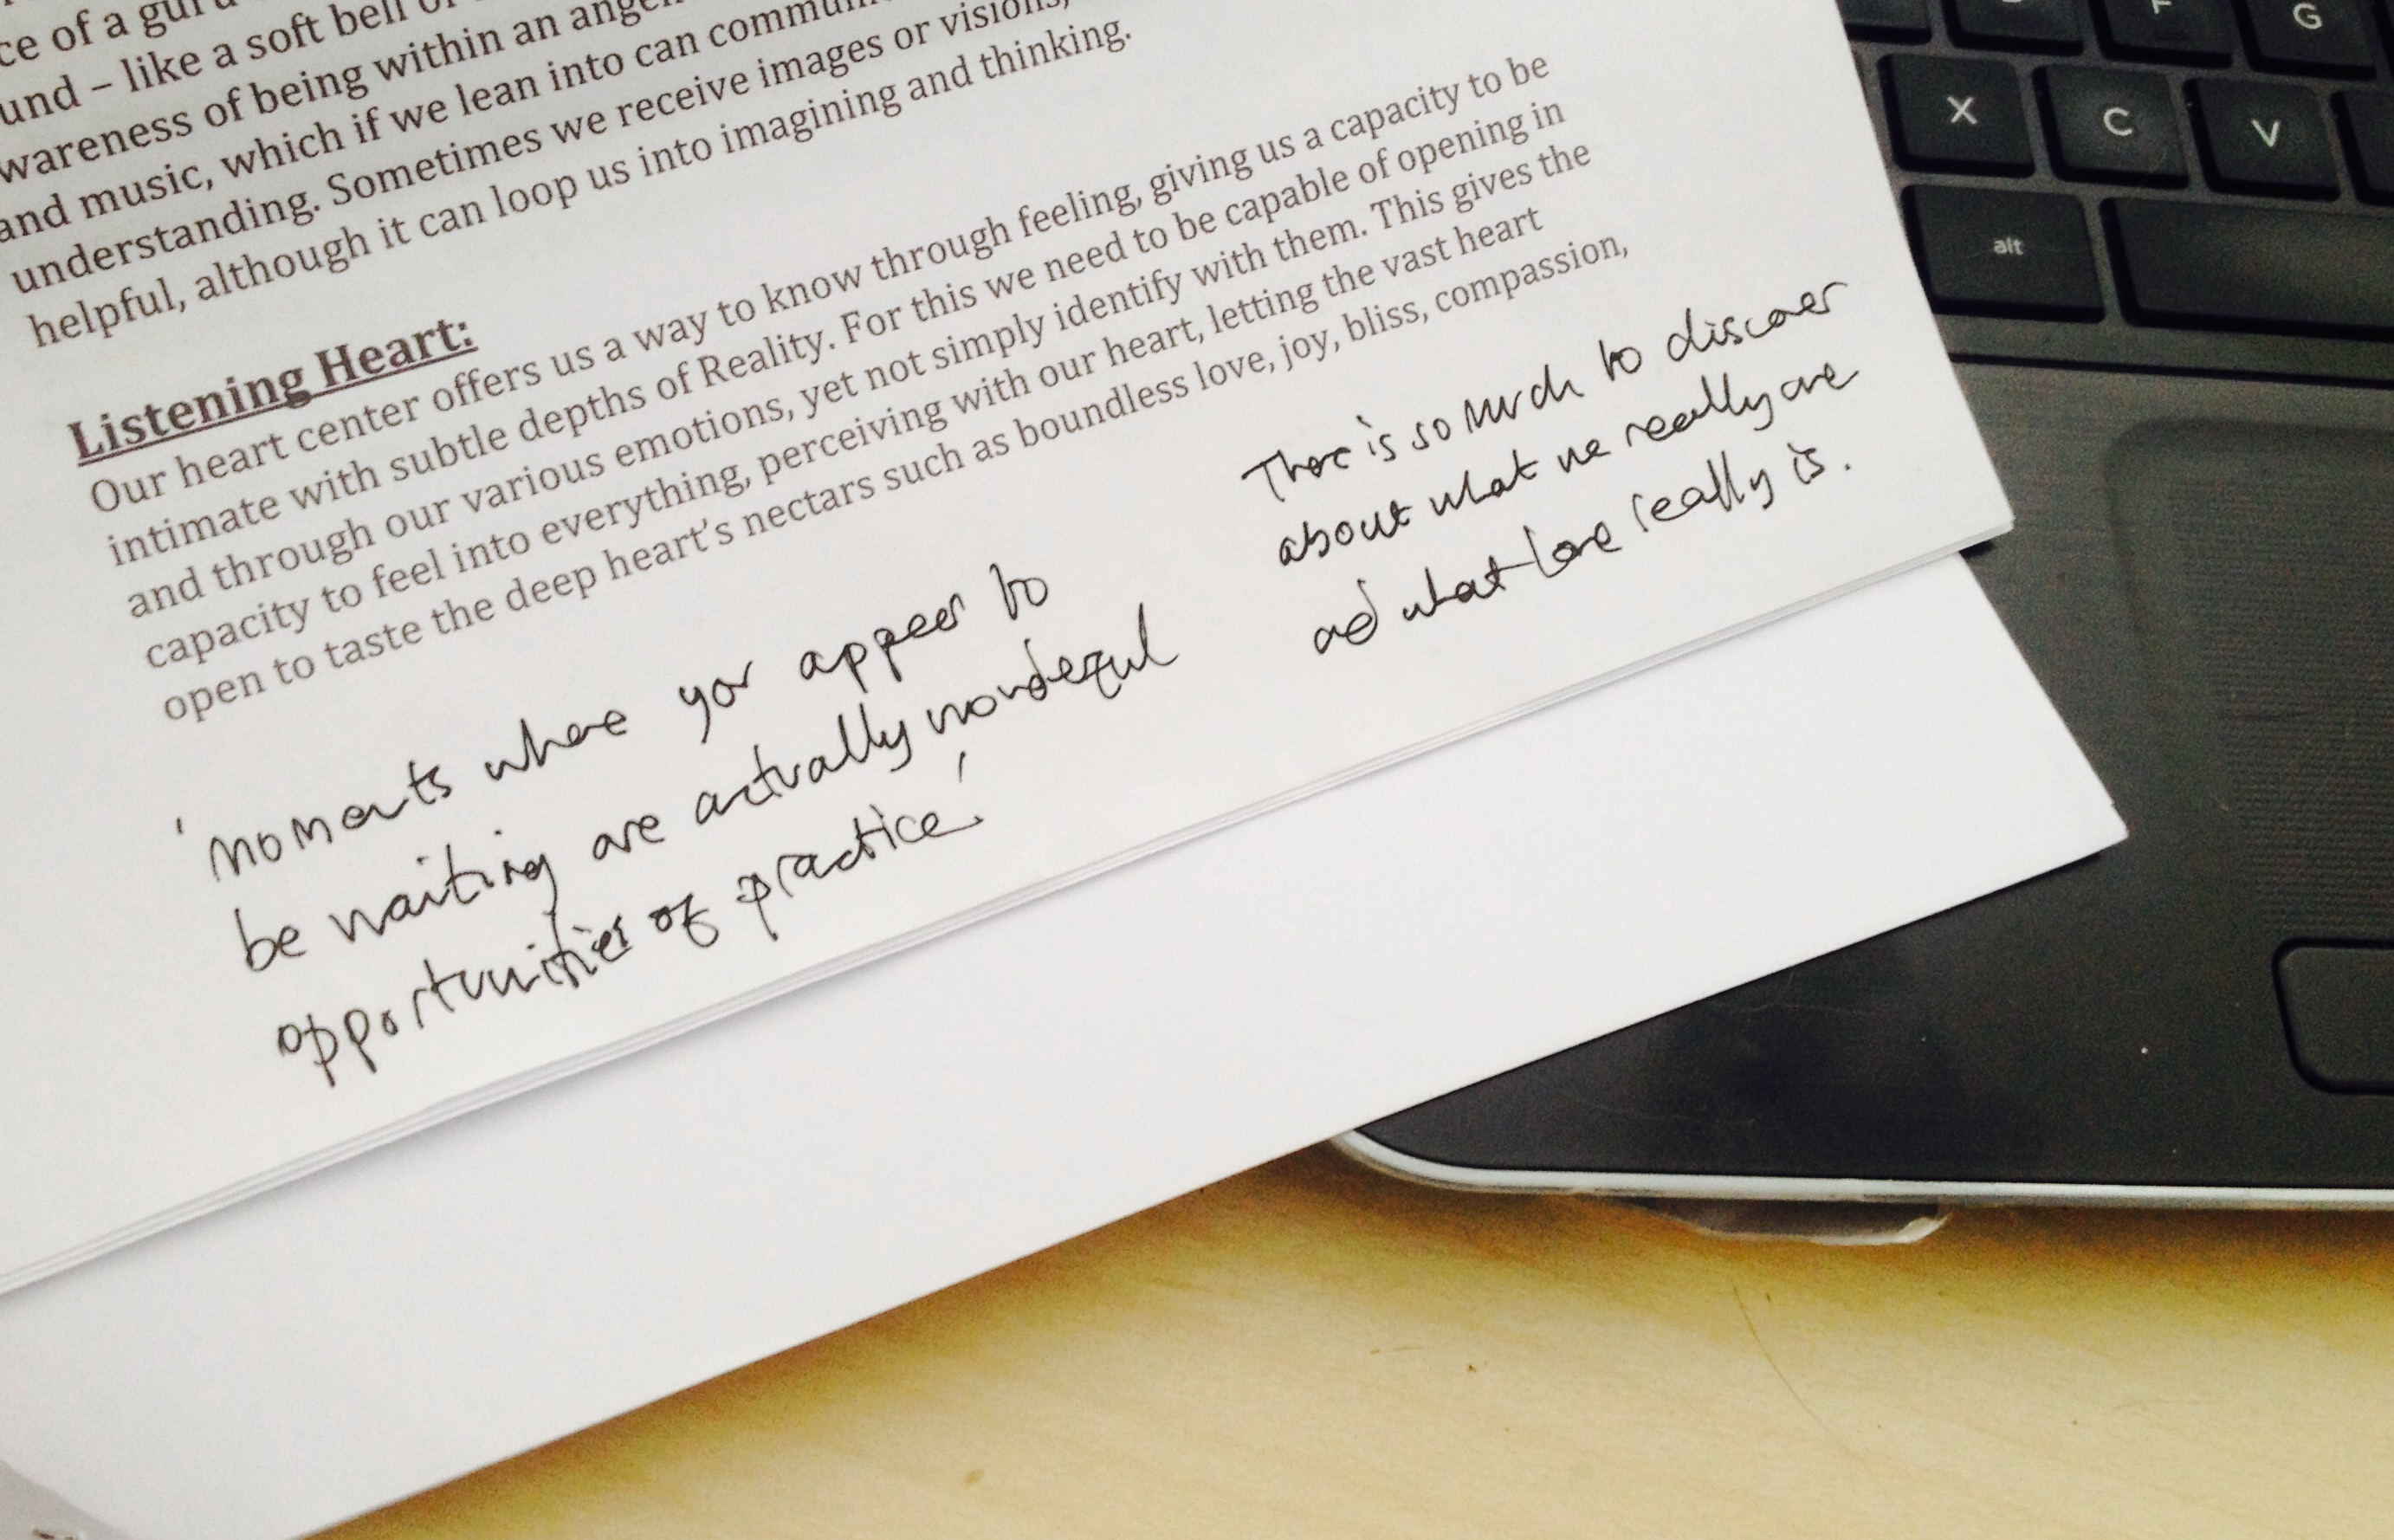 ce of a guru
und – like a soft bell or
wareness of being within an angeli
and music, which if we lean into can commun
understanding. Sometimes we receive images or visions,
helpful, although it can loop us into imagining and thinking.
Listening Heart:
Our heart center offers us a way to know through feeling, giving us a capacity to be
intimate with subtle depths of Reality. For this we need to be capable of opening in
and through our various emotions, yet not simply identify with them. This gives the
capacity to feel into everything, perceiving with our heart, letting the vast heart
open to taste the deep heart's nectars such as boundless love, joy, bliss, compassion,
There is so much to discover
about what we really are
and what love really is.
'moments where you appear to
be waiting are actually wonderful
opportunities of practice.'
F
G
X
C
V
alt